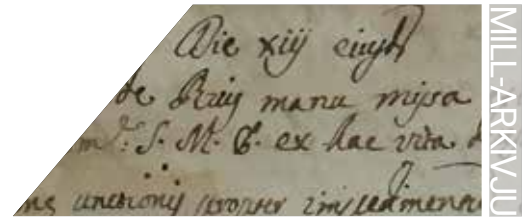 Die xiij eiusd
de Ruy manu missa
S. M. E. ex hac vita
unctionis propter
MILL-ARKIVJU